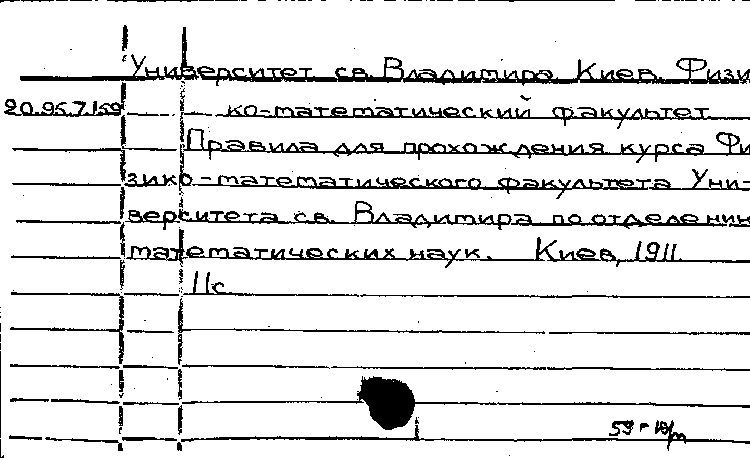 Университет св. Владимира Киев. Физи
20.95.7.159 ко-математический факультет
Правила для прохождения курса Фи
зико-математического факультета Уни-
верситета св. Владимира по отделению
математических наук. Киев, 1911
11с
59-